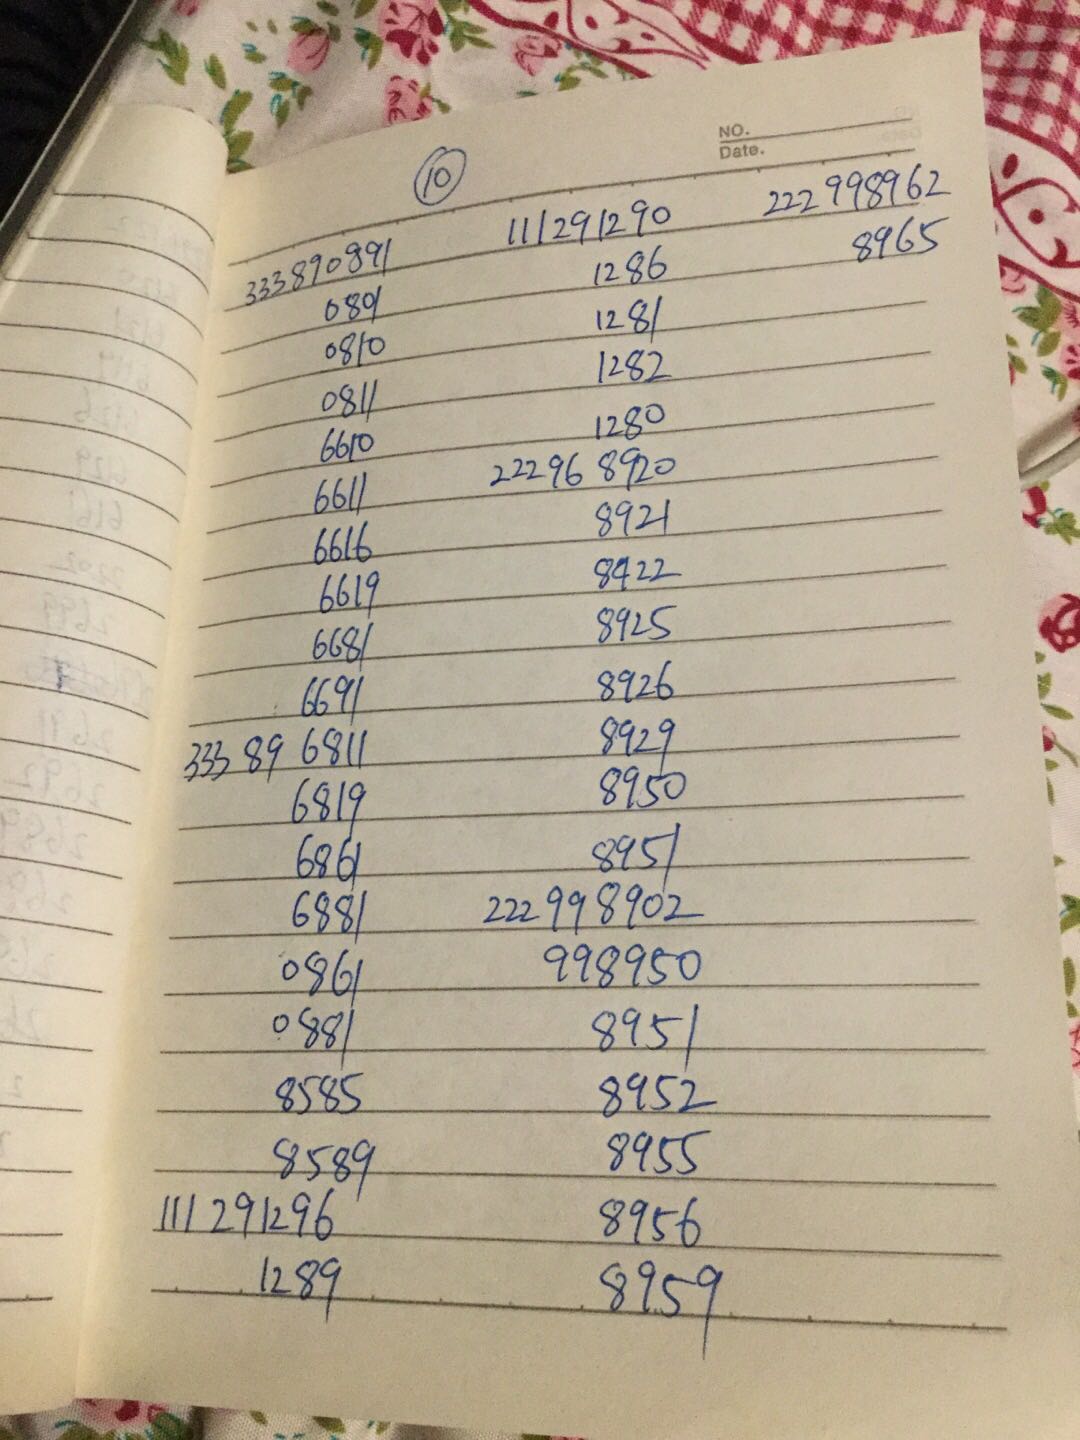 NO.
Date.
10
333890891
0801
0810
0811
6610
6611
6616
6619
6681
6691
333 89 6811
6819
6861
6881
0861
0881
8585
8589
111 291296
1289
111291290
1286
1281
1282
1280
22296 8920
8921
8922
8925
8926
8929
8950
8951
222 998902
998950
8951
8952
8955
8956
8959
222998962
8965